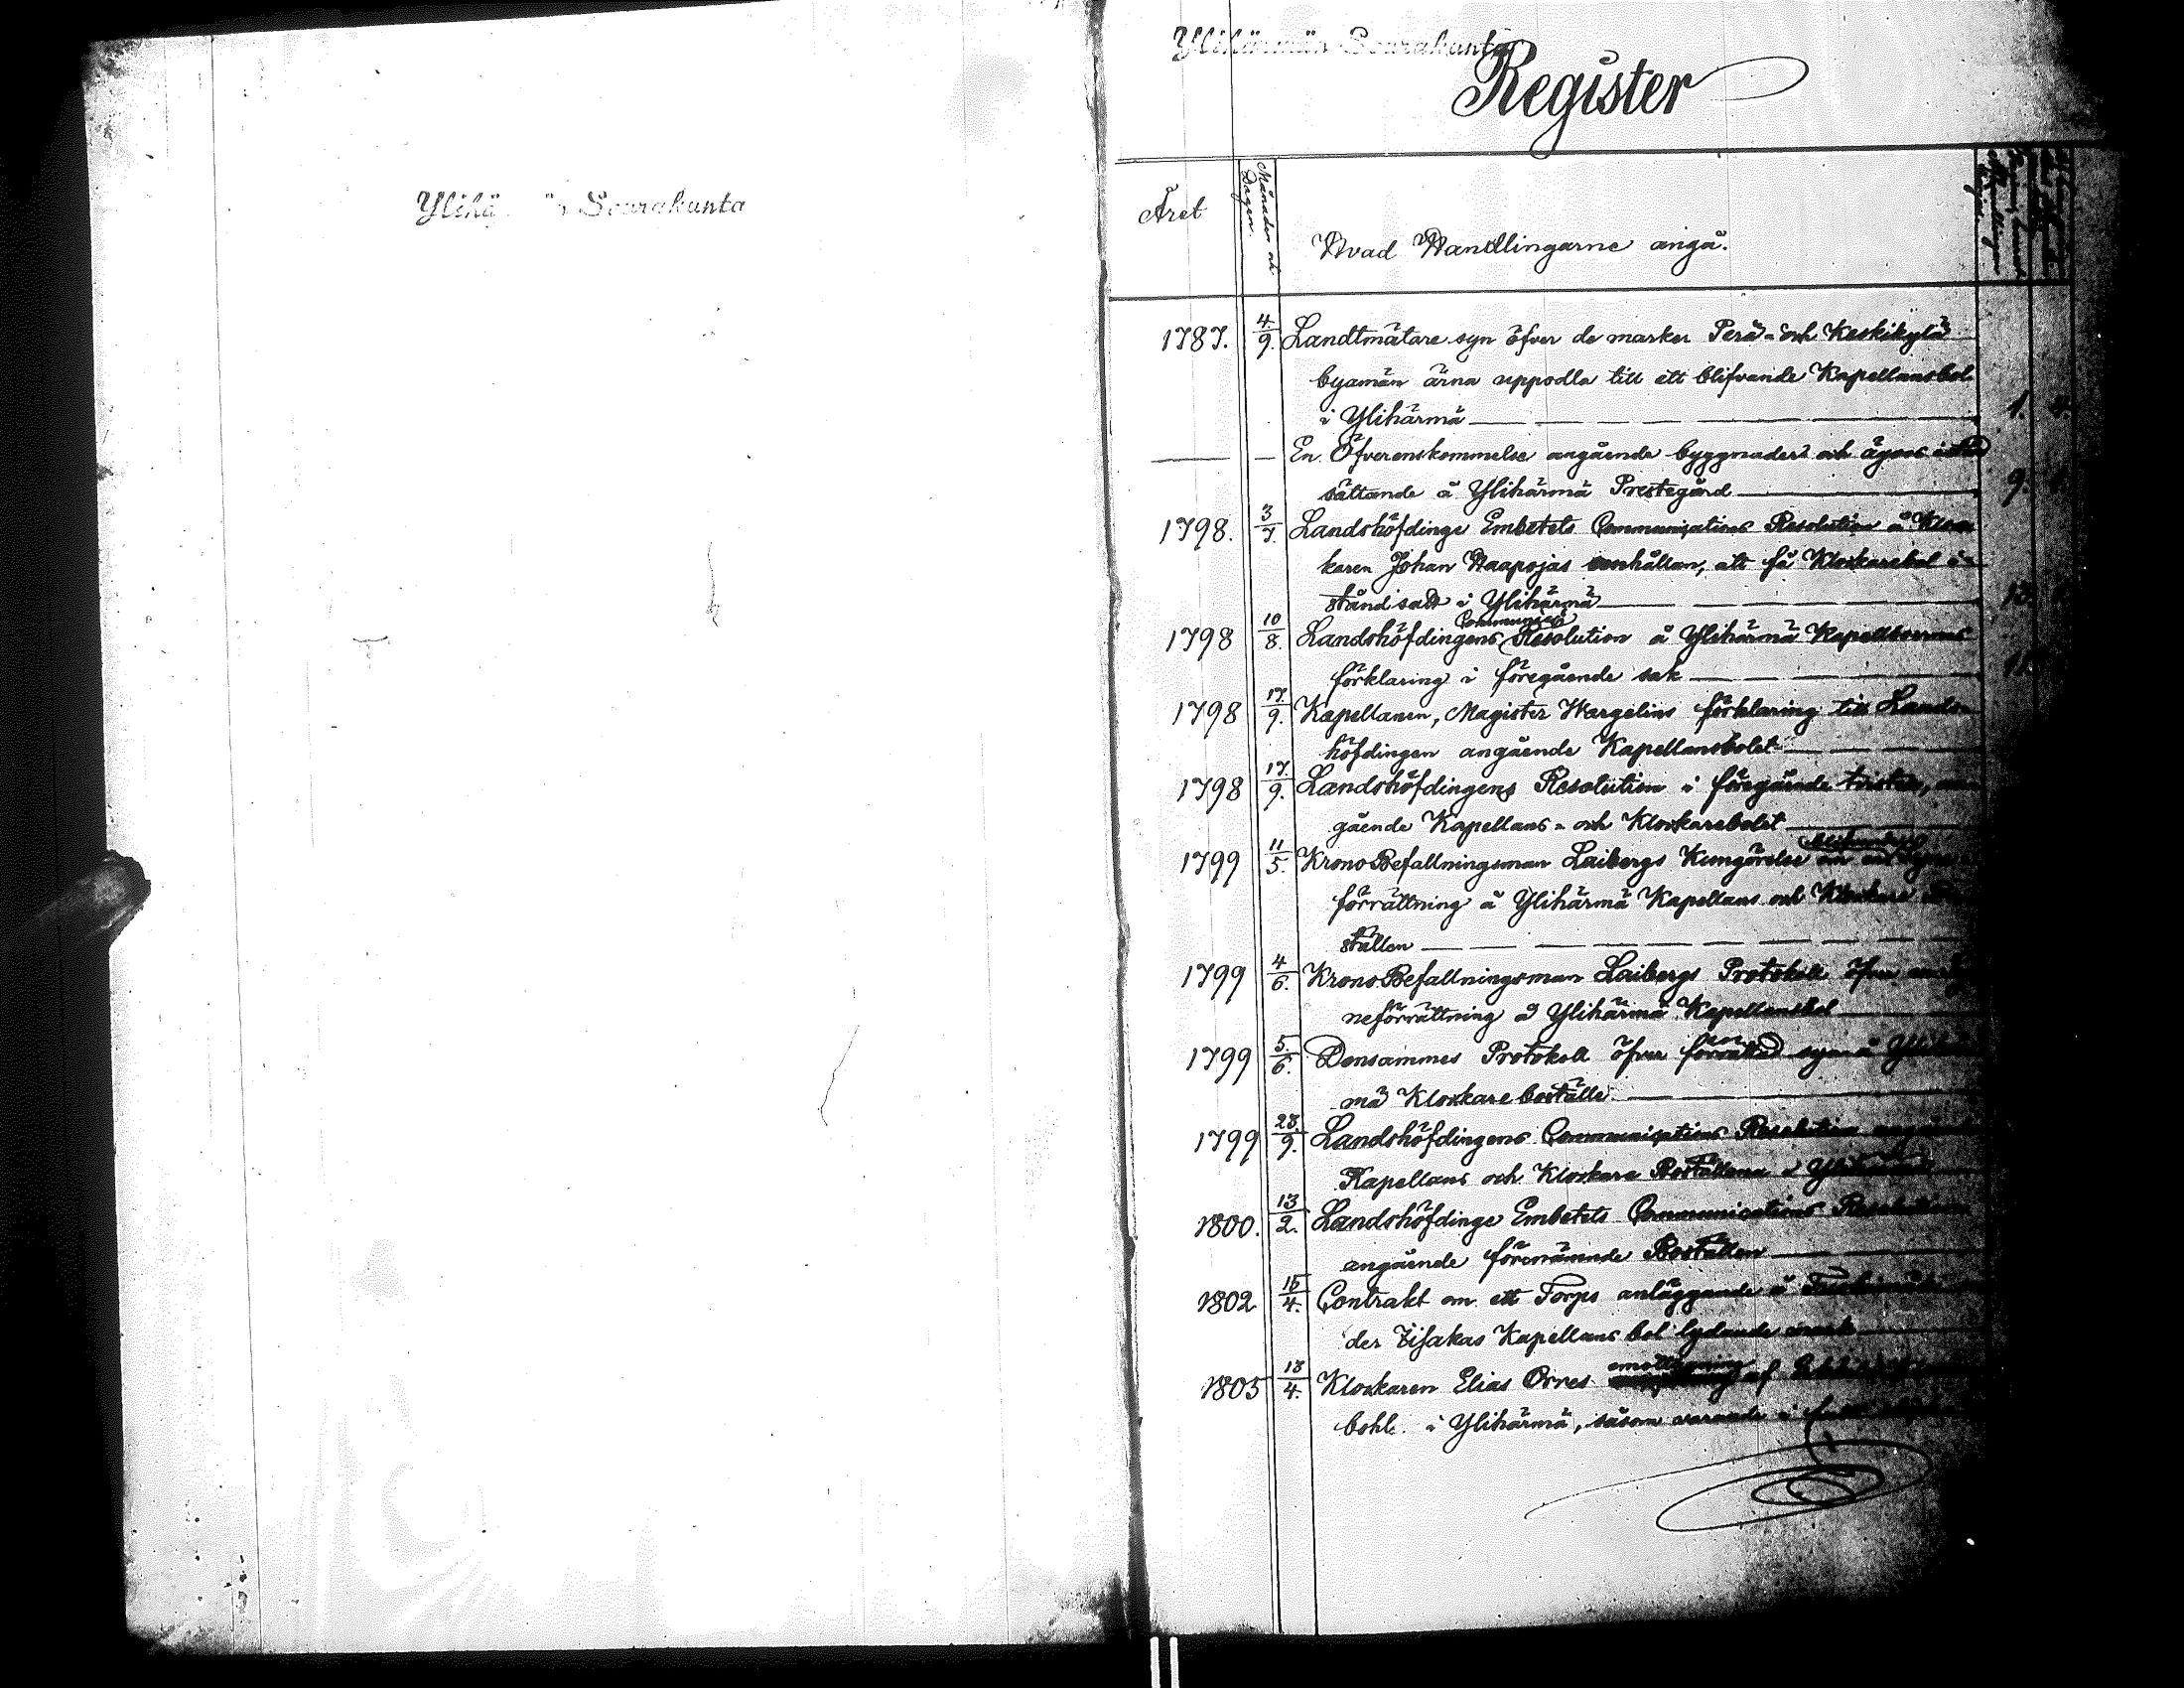 Ylihä n Seurakunta
Ylihärmän Seurakunta
Register
Året
Månaden och
Dagen.
Hvad Handlingarne angå.
1787. 4/9. Landtmätare syn öfver de marker Perä- och Keskikylä
byamän ärna uppodla till ett blifvande Kapellansbol
i Ylihärmä 1.
En Öfverenskommelse angående byggnaders och ägors
sättande å Ylihärmä Prestegård 9.
1798. 3/7. Landshöfdinge Embetets Communications Resolution å Kloc
karen Johan Haapojas anhållan, att få Klockarebol i
stånd satt i Ylihärmä 13.
1798 10/8. Landshöfdingens Communications Resolution å Ylihärmä Kapellboernes
förklaring i föregående sak
1798 17/9. Kapellanen, Magister Wargelins förklaring till Lands
höfdingen angående Kapellansbolet
1798 17/9. Landshöfdingens Resolution i föregående tvisten, an
gående Kapellans- och Klockarebolet
1799 11/5. Krono Befallningsman Laibergs Kungörelse om en
förrättning å Ylihärmä Kapellans och Klockare
ställen
1799 4/6. Krono Befallningsman Laibergs Protokoll öfver en
neförrättning å Ylihärmä Kapellansbol
1799 5/6. Densammes Protokoll öfver förrättad syn å Ylihär
mä Klockare boställe
1799 28/9. Landshöfdingens Communications Resolution angående
Kapellans och Klockare Boställena i Ylihärmä
1800. 13/2. Landshöfdinge Embetets Communications Resolution
angående förenämnde Boställen
1802 15/4. Contrakt om ett Torps anläggande å
der Kapellans bol lydande mark
1805 18/4. Klockaren Elias Orres emottagning af
bohl i Ylihärmä, såsom varande i